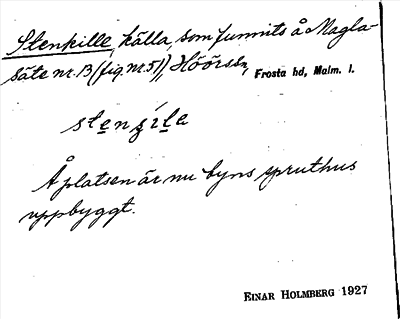 Stenkille, källa, som funnits å Magla-
säte nr. 13 (fig. nr. 51), Höörs sn, Frosta hd, Malm. l.
Å platsen är nu byns spruthus
uppbyggt.
EINAR HOLMBERG 1927